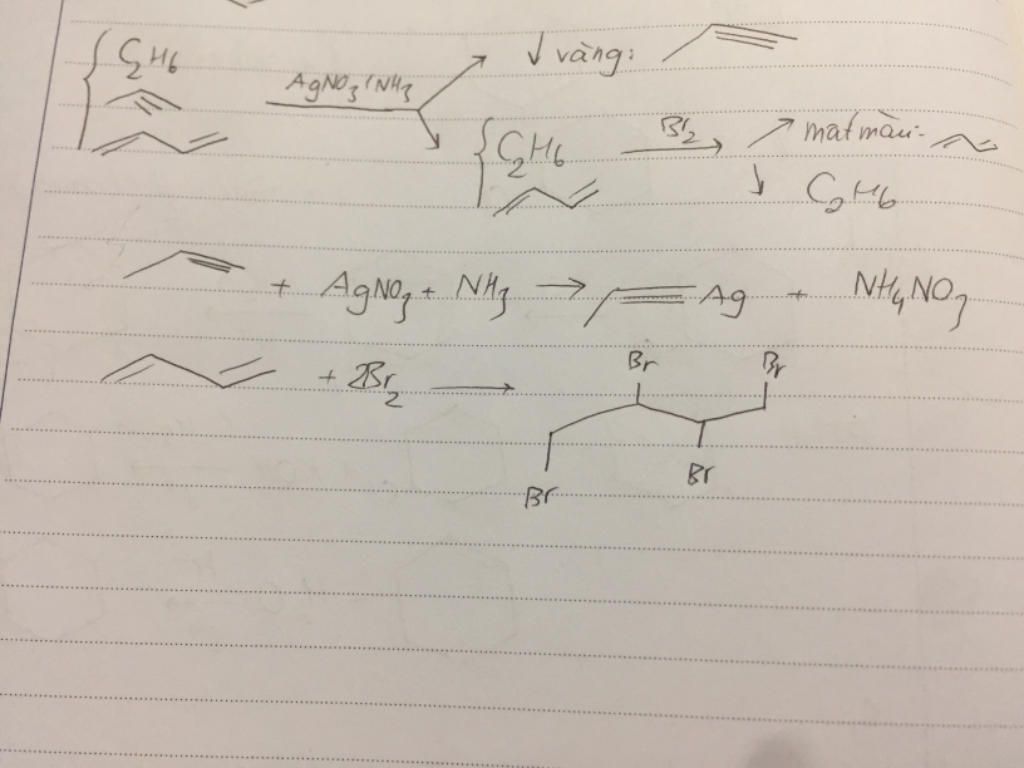 C2H6
AgNO3/NH3
↓ vàng:
{ C2H6
Br2
mất màu:
C2H6
+ AgNO3 + NH3 → Ag + NH4NO3
+ 2Br2 →
Br Br
Br Br